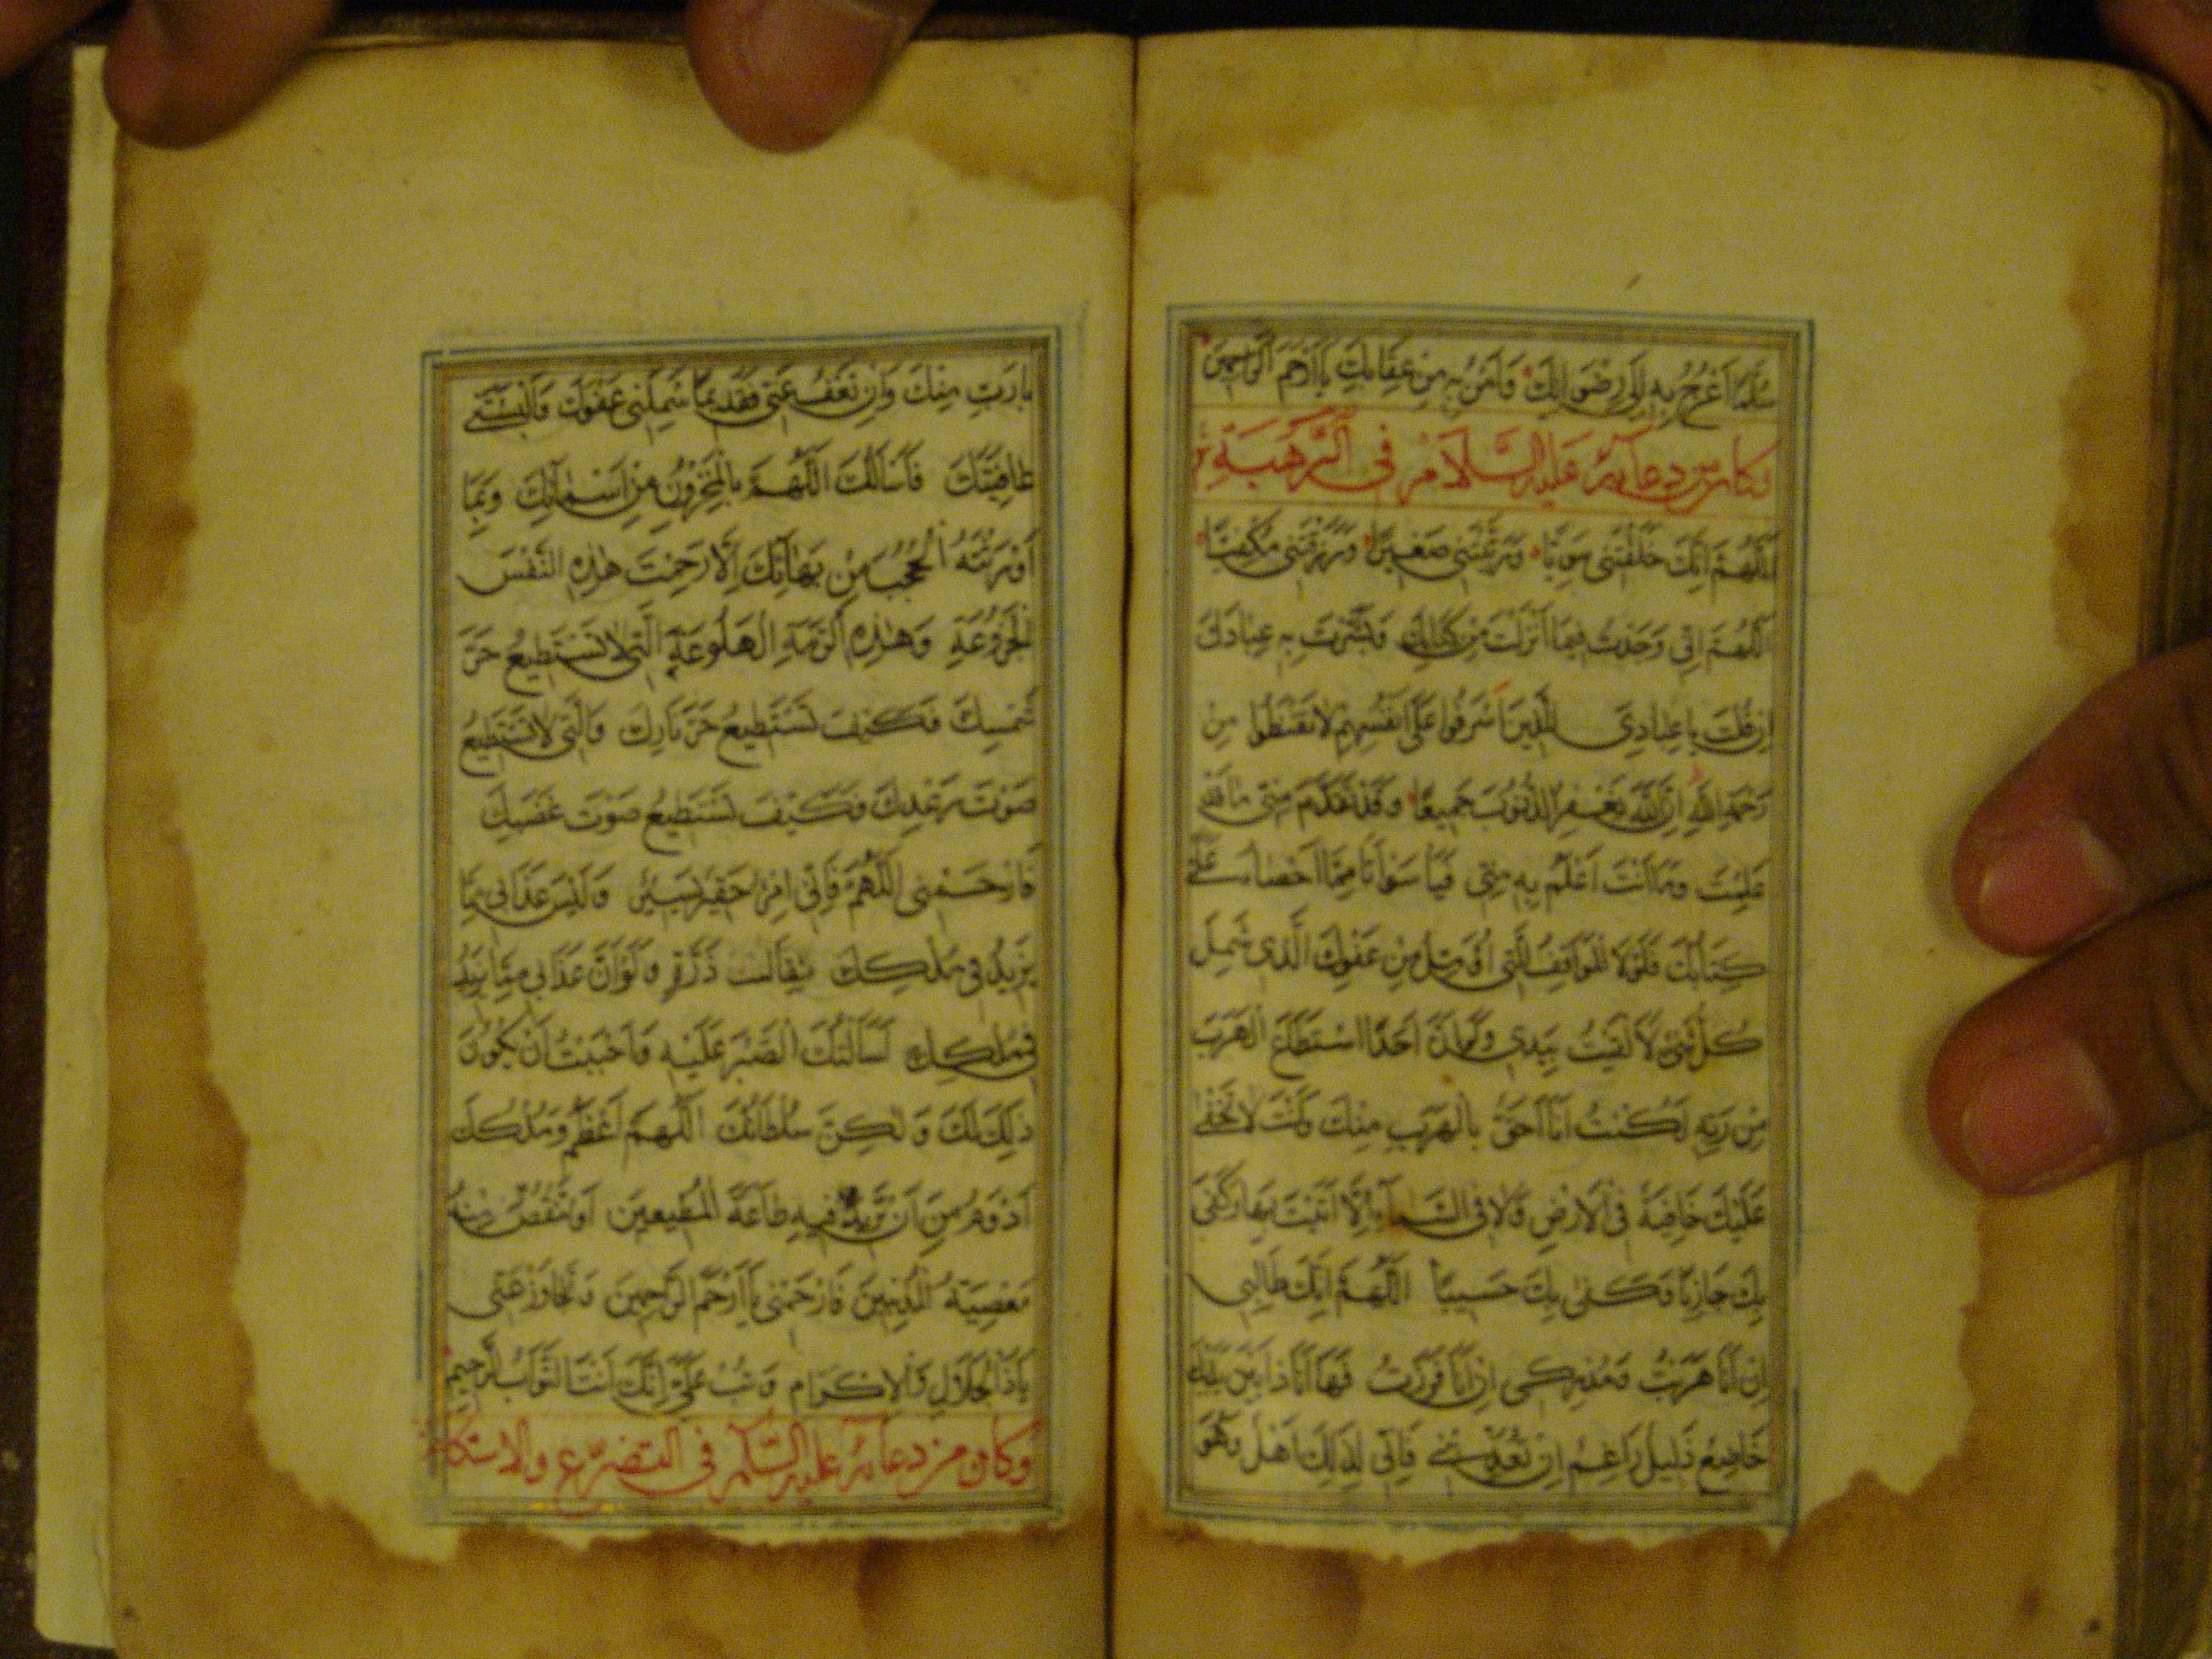 سُلَّمًا اَعْرُجُ بِهِ اِلٰى رِضْوَانِكَ وَاٰمَنُ بِهِ مِنْ عِقَابِكَ يَا اَرْحَمَ الرَّاحِمِينَ
وكان من دعائه عليه السلام في الرهبة
اَللّٰهُمَّ اِنَّكَ خَلَقْتَنِي سَوِيًّا وَرَبَّيْتَنِي صَغِيرًا وَرَزَقْتَنِي مَكْفِيًّا
اَللّٰهُمَّ اِنِّي وَجَدْتُ فِيمَا اَنْزَلْتَ مِنْ كِتَابِكَ وَبَشَّرْتَ بِهِ عِبَادَكَ
اِنْ قُلْتَ يَا عِبَادِيَ الَّذِينَ اَسْرَفُوا عَلٰى اَنْفُسِهِمْ لَا تَقْنَطُوا مِنْ
رَحْمَةِ اللّٰهِ اِنَّ اللّٰهَ يَغْفِرُ الذُّنُوبَ جَمِيعًا وَقَدْ تَقَدَّمَ مِنِّي مَا قَدْ
عَلِمْتَ وَمَا اَنْتَ اَعْلَمُ بِهِ مِنِّي فَيَا سَوْاَتَا مِمَّا اَحْصَاهُ عَلَيَّ
كِتَابُكَ فَلَوْلَا الْمَوَاقِفُ الَّتِي اُؤَمِّلُ مِنْ عَفْوِكَ الَّذِي شَمِلَ
كُلَّ شَيْءٍ لَاَلْقَيْتُ بِيَدِي وَلَوْ اَنَّ اَحَدًا اسْتَطَاعَ الْهَرَبَ
مِنْ رَبِّهِ لَكُنْتُ اَنَا اَحَقَّ بِالْهَرَبِ مِنْكَ وَاَنْتَ لَا تَخْفٰى
عَلَيْكَ خَافِيَةٌ فِي الْاَرْضِ وَلَا فِي السَّمَاءِ اِلَّا اَتَيْتَ بِهَا وَكَفٰى
بِكَ جَازِيًا وَكَفٰى بِكَ حَسِيبًا اَللّٰهُمَّ اِنَّكَ طَالِبِي
اِنْ اَنَا هَرَبْتُ وَمُدْرِكِي اِنْ اَنَا فَرَرْتُ فَهَا اَنَا ذَا بَيْنَ يَدَيْكَ
خَاضِعٌ ذَلِيلٌ رَاغِمٌ اِنْ تُعَذِّبْنِي فَاِنِّي لِذٰلِكَ اَهْلٌ وَهُوَ
يَا رَبِّ مِنْكَ وَاِنْ تَعْفُ عَنِّي فَقَدِيمًا شَمِلَنِي عَفْوُكَ وَاَلْبَسْتَنِي
عَافِيَتَكَ فَاَسْاَلُكَ اللّٰهُمَّ بِالْمَخْزُونِ مِنْ اَسْمَائِكَ وَبِمَا
وَارَتْهُ الْحُجُبُ مِنْ بَهَائِكَ اِلَّا رَحِمْتَ هٰذِهِ النَّفْسَ
الْجَزُوعَةَ وَهٰذِهِ الرِّمَّةَ الْهَلُوعَةَ الَّتِي لَا تَسْتَطِيعُ حَرَّ
شَمْسِكَ فَكَيْفَ تَسْتَطِيعُ حَرَّ نَارِكَ وَالَّتِي لَا تَسْتَطِيعُ
صَوْتَ رَعْدِكَ فَكَيْفَ تَسْتَطِيعُ صَوْتَ غَضَبِكَ
فَارْحَمْنِي اللّٰهُمَّ فَاِنِّي امْرُؤٌ حَقِيرٌ يَسِيرٌ وَلَيْسَ عَذَابِي مِمَّا
يَزِيدُ فِي مُلْكِكَ مِثْقَالَ ذَرَّةٍ وَلَوْ اَنَّ عَذَابِي مِمَّا يَزِيدُ
فِي مُلْكِكَ لَسَاَلْتُكَ الصَّبْرَ عَلَيْهِ وَاَحْبَبْتُ اَنْ يَكُونَ
ذٰلِكَ لَكَ وَلٰكِنْ سُلْطَانُكَ اللّٰهُمَّ اَعْظَمُ وَمُلْكُكَ
اَدْوَمُ مِنْ اَنْ تَزِيدَ فِيهِ طَاعَةُ الْمُطِيعِينَ اَوْ تَنْقُصَ مِنْهُ
مَعْصِيَةُ الْمُذْنِبِينَ فَارْحَمْنِي يَا اَرْحَمَ الرَّاحِمِينَ وَتَجَاوَزْ عَنِّي
يَا ذَا الْجَلَالِ وَالْاِكْرَامِ وَتُبْ عَلَيَّ اِنَّكَ اَنْتَ التَّوَّابُ الرَّحِيمُ
وكان من دعائه عليه السلام في التضرع والاستكانة